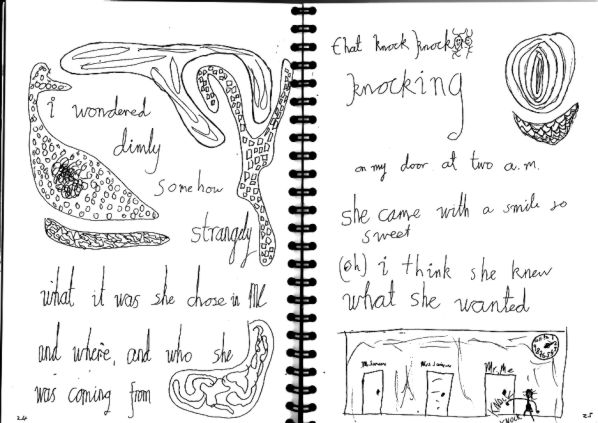 i wondered
dimly
somehow
strangely
what it was she chose in ME
and where, and who she
was coming from
24
that knock knock
knocking
on my door at two a.m.
she came with a smile so
sweet
(oh) i think she knew
what she wanted
Mr. Me
KNOCK
KNOCK
25